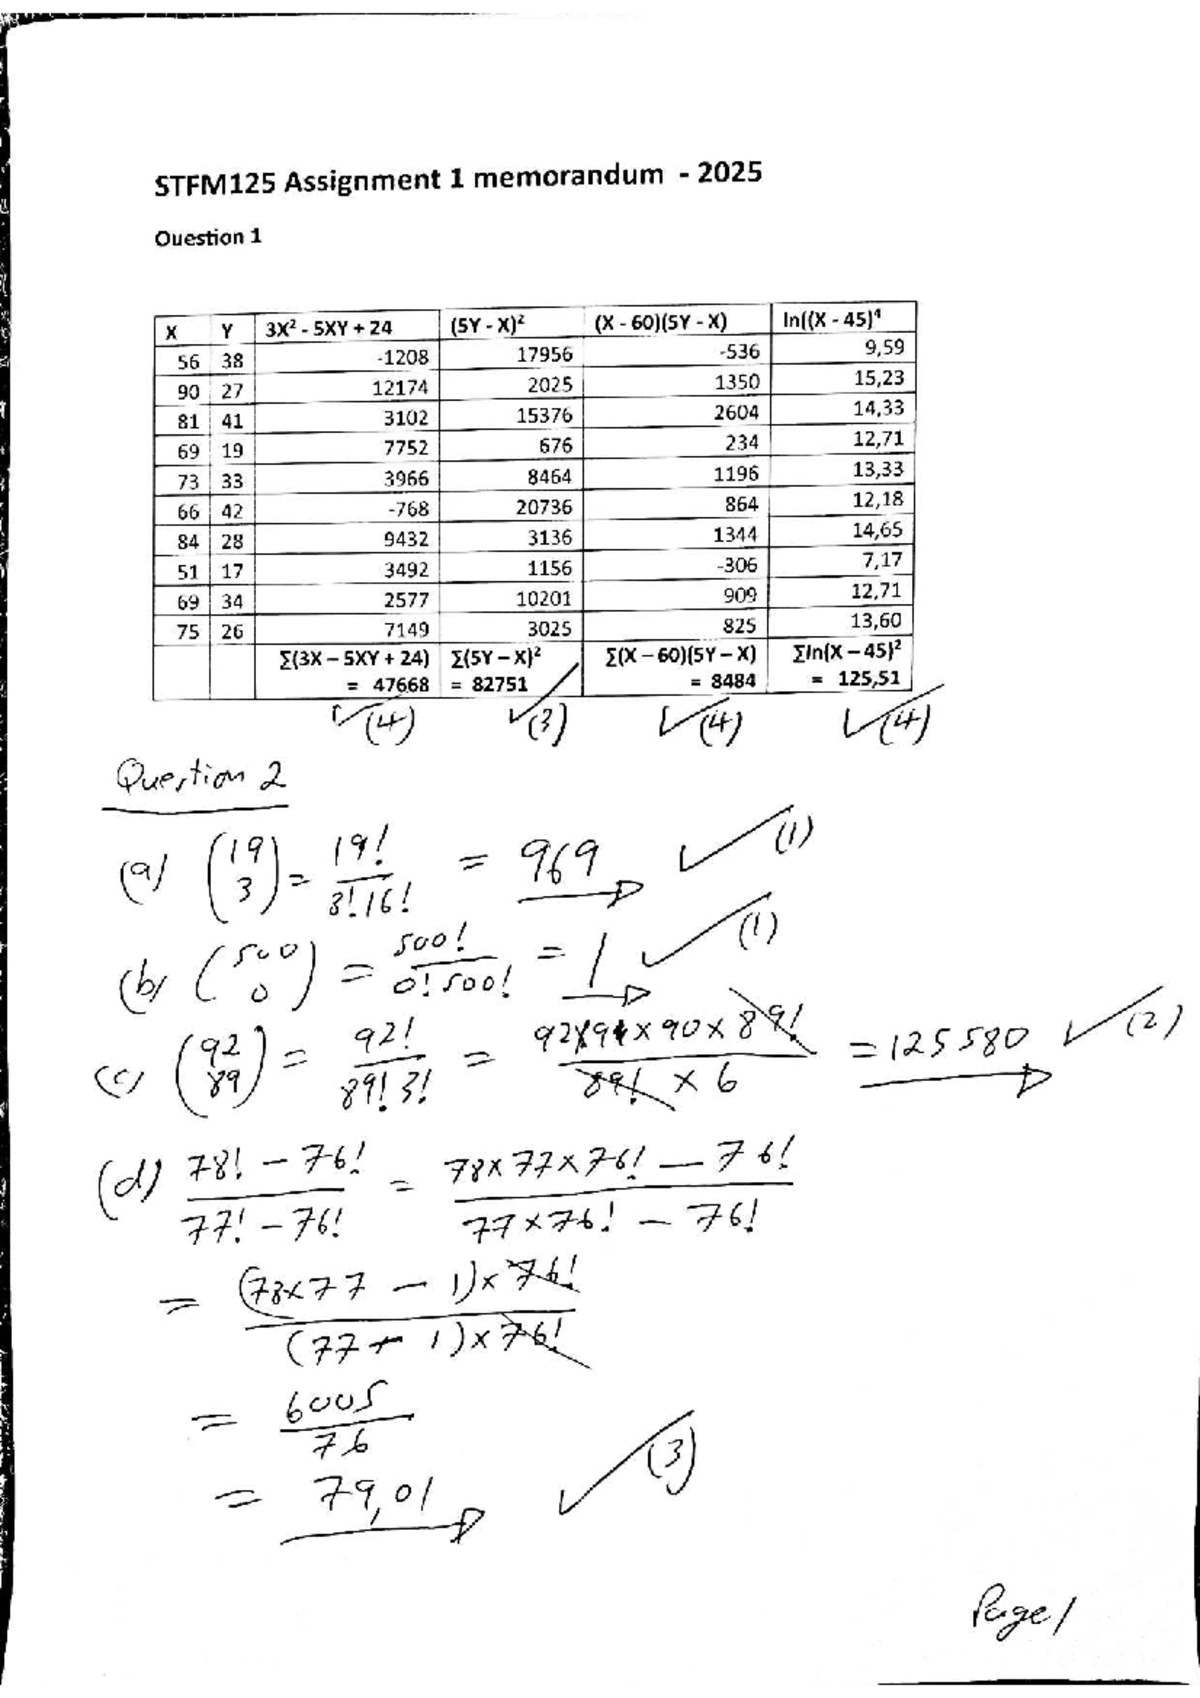 STFM125 Assignment 1 memorandum - 2025
Question 1
X Y 3X² - 5XY + 24 (5Y - X)² (X - 60)(5Y - X) ln((X - 45)⁴
56 38 -1208 17956 -536 9,59
90 27 12174 2025 1350 15,23
81 41 3102 15376 2604 14,33
69 19 7752 676 234 12,71
73 33 3966 8464 1196 13,33
66 42 -768 20736 864 12,18
84 28 9432 3136 1344 14,65
51 17 3492 1156 -306 7,17
69 34 2577 10201 909 12,71
75 26 7149 3025 825 13,60
Σ(3X – 5XY + 24) Σ(5Y – X)² Σ(X – 60)(5Y – X) Σln(X – 45)²
= 47668 = 82751 = 8484 = 125,51
✓(4) ✓(3) ✓(4) ✓(4)
Question 2
(a) (19 3) = 19!/3!16! = 969 ✓(1)
(b) (500 0) = 500!/0!500! = 1 ✓(1)
(c) (92 89) = 92!/89!3! = 92×91×90×89!/89!×6 = 125580 ✓(2)
(d) 78! – 76!/77! – 76! = 78×77×76! – 76!/77×76! – 76!
= (78×77 – 1)×76!/(77 – 1)×76!
= 6005/76
= 79,01 ✓(3)
Page 1